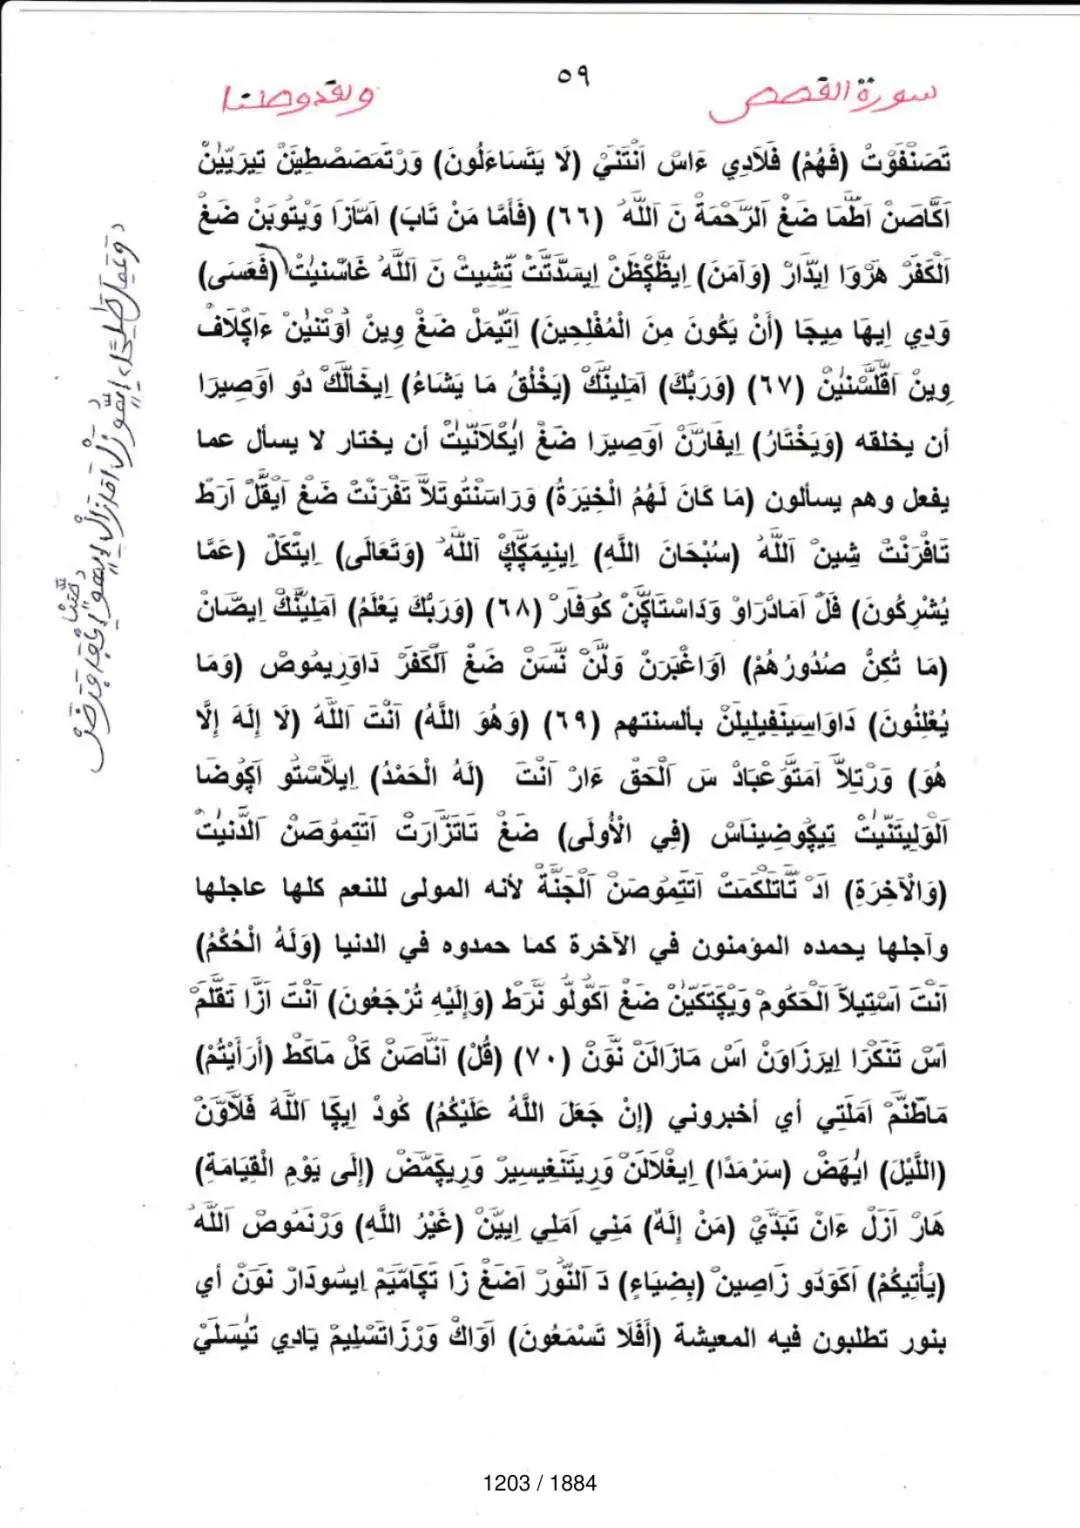 سورة القصص
٥٩
ولقد وصلنا
تَصَنْفَوْتْ (فَهُمْ) فَلَادِي ءَاسْ اَنْتَنَيْ (لَا يَتَسَاءَلُونَ) وَرْتَمَصَصْطِيَنْ تِيرَيِيَنْ
اَكَّاصَنْ اَطَّمَا ضَغْ اَلرَّحْمَةْ نَ اَللَّهْ (٦٦) (فَأَمَّا مَنْ تَابَ) اَمَازَا وَيْتُوبَنْ ضَغْ
اَلْكَفَرْ هَرْوَا اِيدَّارْ (وَآمَنَ) اِيظَّكِظَنْ اِيسَدَّتَّتْ تَّشِيتْ نَ اَللَّهْ غَاسْنِيتْ (فَعَسَى)
وَدِي اِيهَا مِيجَا (أَنْ يَكُونَ مِنَ الْمُفْلِحِينَ) اَتِّيمَلْ ضَغْ وِينْ اُوتْنِيَنْ ءَاكِلَافْ
وِينْ اَفَلَّسْنِيَنْ (٦٧) (وَرَبُّكَ) اَمَلِينَّكْ (يَخْلُقُ مَا يَشَاءُ) اِيخَالَّكْ دُو اَوَصِيرَا
أن يخلقه (وَيَخْتَارُ) اِيفَارَنْ اَوَصِيرَا ضَغْ اَيْكْلَانِّيتْ أن يختار لا يسأل عما
يفعل وهم يسألون (مَا كَانَ لَهُمُ الْخِيَرَةُ) وَرَاسَنْتُوتَلاَّ تَفْرَنْتْ ضَغْ اَيْقَلْ اَرَطْ
تَافْرَنْتْ شِينْ اَللَّهْ (سُبْحَانَ اللَّهِ) اِينِيمَكِّكْ اَللَّهْ (وَتَعَالَى) اِيتْكَلْ (عَمَّا
يُشْرِكُونَ) فَلْ اَمَادْرَاوْ وَدَاسْتَاكِّنْ كُوفَارْ (٦٨) (وَرَبُّكَ يَعْلَمُ) اَمَلِينَّكْ اِيصَّانْ
(مَا تُكِنُّ صُدُورُهُمْ) اَوَاغْبَرَنْ وَلَّنْ نَّسَنْ ضَغْ اَلْكَفَرْ دَاوَرِيمُوصْ (وَمَا
يُعْلِنُونَ) دَاوَاسِينَفِيلِيلَنْ بألسنتهم (٦٩) (وَهُوَ اللَّهُ) اَنْتَ اَللَّهُ (لَا إِلَهَ إِلَّا
هُوَ) وَرْتِلاَّ اَمَتَّوَعْبَادْ سَ اَلْحَقْ ءَارْ اَنْتَ (لَهُ الْحَمْدُ) اِيلاَّسْتُو اَكُوضَا
اَلْوَلِيتَنِّيتْ تِيكُوضِينَاسْ (فِي الْأُولَى) ضَغْ تَاتَزَّارَتْ اَتَّتِمُوصَنْ اَلدُّنِيتْ
(وَالْآخِرَةِ) اَدْ تَّاتَلْكَمَتْ اَتَّتِمُوصَنْ اَلْجَنَّةْ لأنه المولى للنعم كلها عاجلها
وآجلها يحمده المؤمنون في الآخرة كما حمدوه في الدنيا (وَلَهُ الْحُكْمُ)
اَنْتَ اَسْتِيلاَ اَلْحَكُومْ وَيْكْتَكَيَنْ ضَغْ اَكُولُو نَّرَطْ (وَإِلَيْهِ تُرْجَعُونَ) اَنْتَ اَزَّا تَقَّلَمْ
اَسْ تَنْكَرَا اِيرَزَاوَنْ اَسْ مَازَالَنْ نَّوَنْ (٧٠) (قُلْ) اَنَّاصَنْ كَلْ مَاكَطْ (أَرَأَيْتُمْ)
مَاطَنَّمْ اَمَلَتِي أي أخبروني (إِنْ جَعَلَ اللَّهُ عَلَيْكُمُ) كُودْ اِيكَا اَللَّهْ فَلاَّوَنْ
(اللَّيْلَ) اَيْهَضْ (سَرْمَدًا) اِيغْلَالَنْ وَرِيتَنْغِيسِيرْ وَرِيكَمَّضْ (إِلَى يَوْمِ الْقِيَامَةِ)
هَارْ اَزَلْ ءَانْ تَبَدَّيْ (مَنْ إِلَهٌ) مَنِي اَمَلِي اِيِيَنْ (غَيْرُ اللَّهِ) وَرْنَمُوصْ اَللَّهْ
(يَأْتِيكُمْ) اَكَوَدُو زَاصِينْ (بِضِيَاءٍ) دَ اَلنُّورْ اَضَغْ زَا تَكَامَّيَمْ اِيسُودَارْ نَوَنْ أي
بنور تطلبون فيه المعيشة (أَفَلَا تَسْمَعُونَ) اَوَاكْ وَرْزَاتَسْلِيمْ يَادِي تَيْسَلَيْ
1203 / 1884